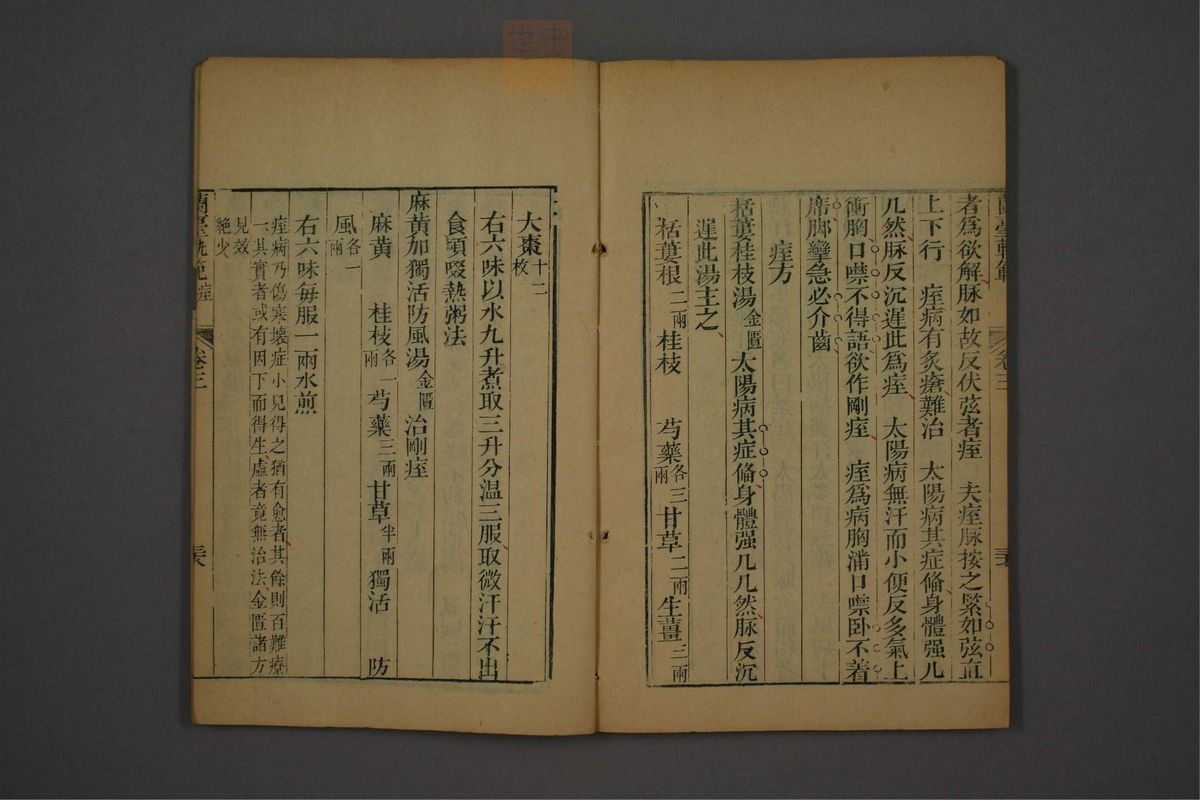 者爲欲解脉如故反伏弦者痙 夫痙脉按之緊如弦直
上下行 痙病有炙瘡難治 太陽病其症俻身體强几
几然脉反沉遲此爲痙 太陽病無汗而小便反多氣上
衝胸口噤不得語欲作剛痙 痙爲病胸滿口噤卧不着
席脚攣急必介齒
痙方
栝蔞桂枝湯金匱 太陽病其症俻身體强几几然脉反沉
遲此湯主之
栝蔞根二兩 桂枝 芍藥各三兩 甘草二兩 生薑三兩
大棗十二枚
右六味以水九升煮取三升分温三服取微汗汗不出
食頃啜熱粥法
麻黃加獨活防風湯金匱 治剛痙
麻黃 桂枝各一兩 芍藥三兩 甘草半兩 獨活 防
風各一兩
右六味每服一兩水煎
痙病乃傷寒壞症小兒得之猶有愈者其餘則百難療
一其實者或有因下而得生虛者竟無治法金匱諸方
見效
絶少
蘭臺軌範 痙 卷三